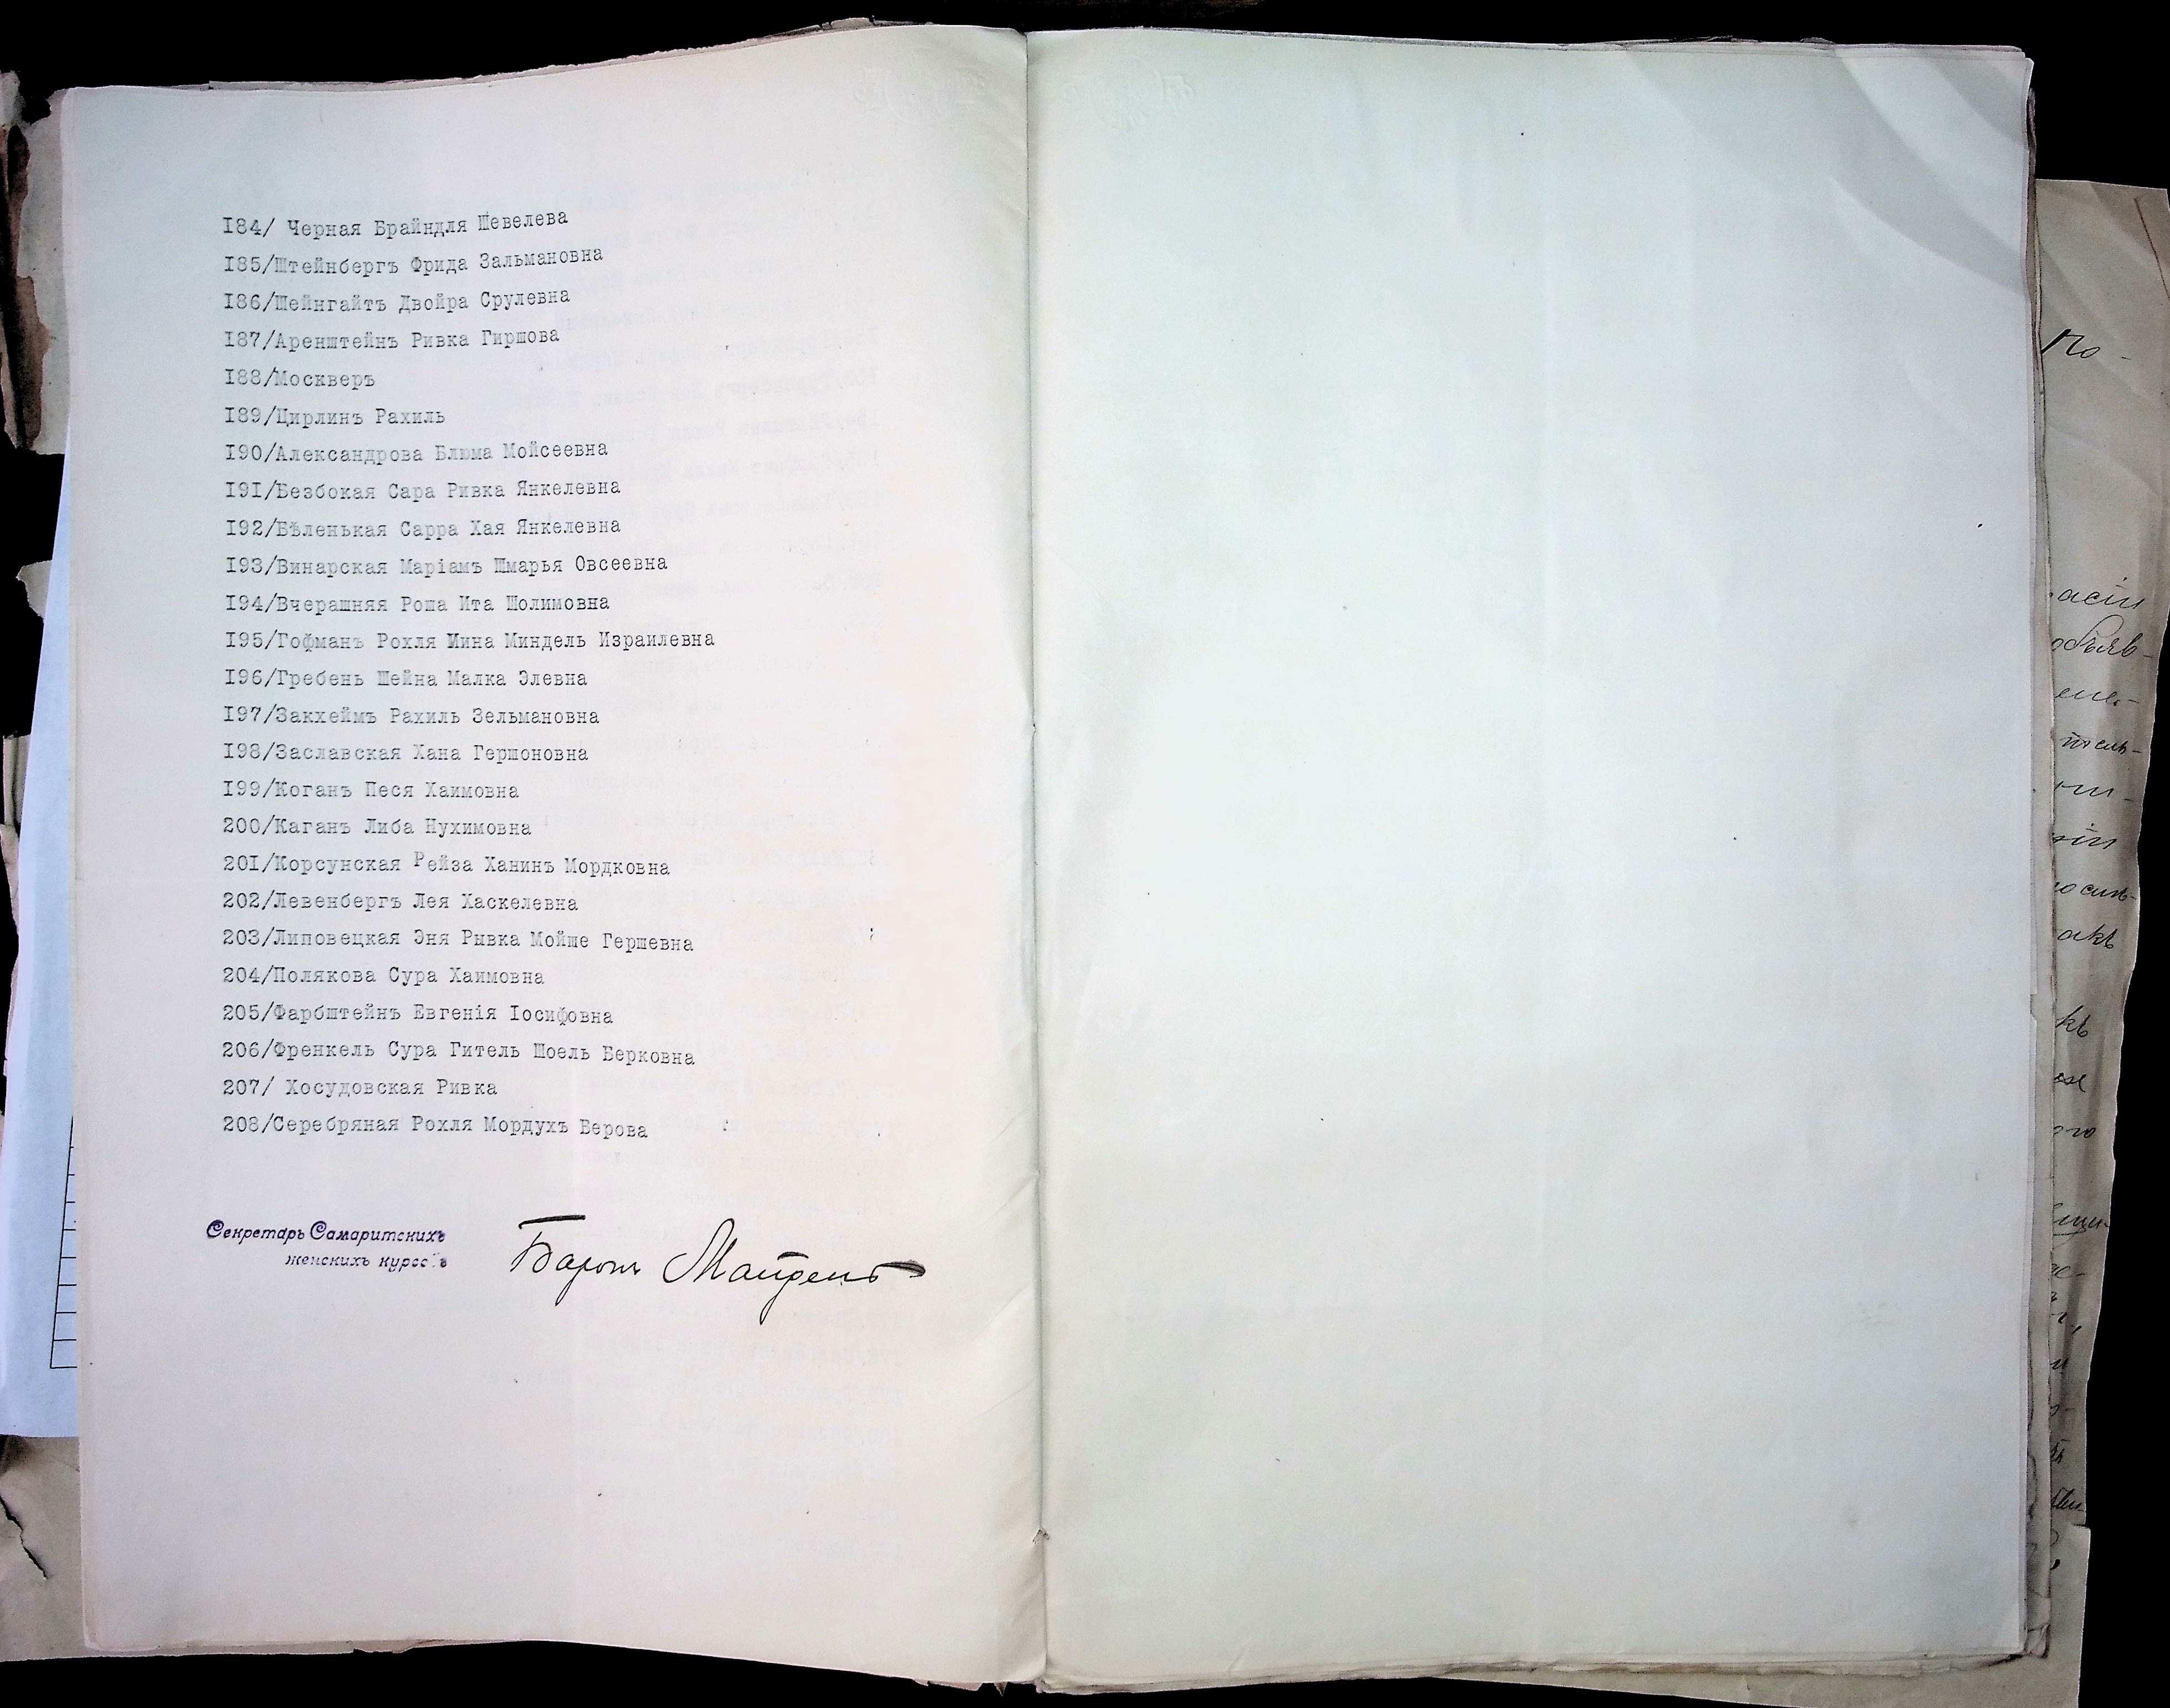 I84/ Черная Брайндля Шевелева
I85/Штейнбергъ Фрида Зальмановна
I86/Шейнгайтъ Двойра Срулевна
I87/Аренштейнъ Ривка Гиршова
I88/Москверъ
I89/Цирлинъ Рахиль
I90/Александрова Блюма Мойсеевна
I9I/Безбокая Сара Ривка Янкелевна
I92/Бѣленькая Сарра Хая Янкелевна
I93/Винарская Маріамъ Шмарья Овсеевна
I94/Вчерашняя Роша Ита Шолимовна
I95/Гофманъ Рохля Мина Миндель Израилевна
I96/Гребень Шейна Малка Элевна
I97/Закхеймъ Рахиль Зельмановна
I98/Заславская Хана Гершоновна
I99/Коганъ Песя Хаимовна
200/Каганъ Либа Нухимовна
20I/Корсунская Рейза Ханинъ Мордковна
202/Левенбергъ Лея Хаскелевна
203/Липовецкая Эня Рывка Мойше Гершевна
204/Полякова Сура Хаимовна
205/Фарбштейнъ Евгенія Іосифовна
206/Френкель Сура Гитель Шоель Берковна
207/ Хосудовская Ривка
208/Серебряная Рохля Мордухъ Берова
Секретарь Самаритскихъ
женскихъ курсовъ
Баронъ